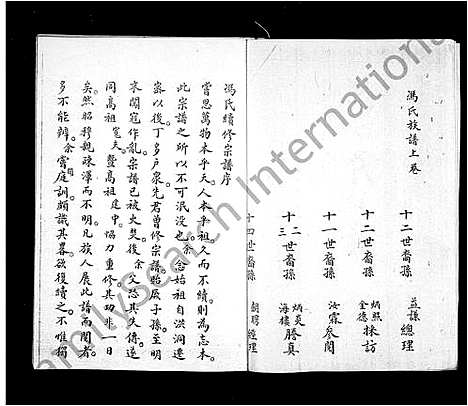 馮氏族譜上卷
十二世裔孫 益謙總理
十二世裔孫 炳照 金德 採訪
十一世裔孫 汝霖參閱
十二 十三 世裔孫 炳英 海樓 謄真
十四世裔孫 朝聘經理
馮氏續修宗譜序
嘗思萬物本乎天人本乎祖久而不續則為忘本
此宗譜之所以不可泯沒也余合始祖自洪洞遷
以後丁多戶眾先君曾修宗譜貽厥子孫至明
末闖寇作亂宗譜已被火焚後余父恐其失傳遂
同高祖 寬夫暨高祖 建中協力重修其功非一日
矣然昭穆親疎渾而不明凡族人展此譜而閱者
多不能辨余嘗聞庭訓頗識其畧欲復續之不唯獨
Family Search International